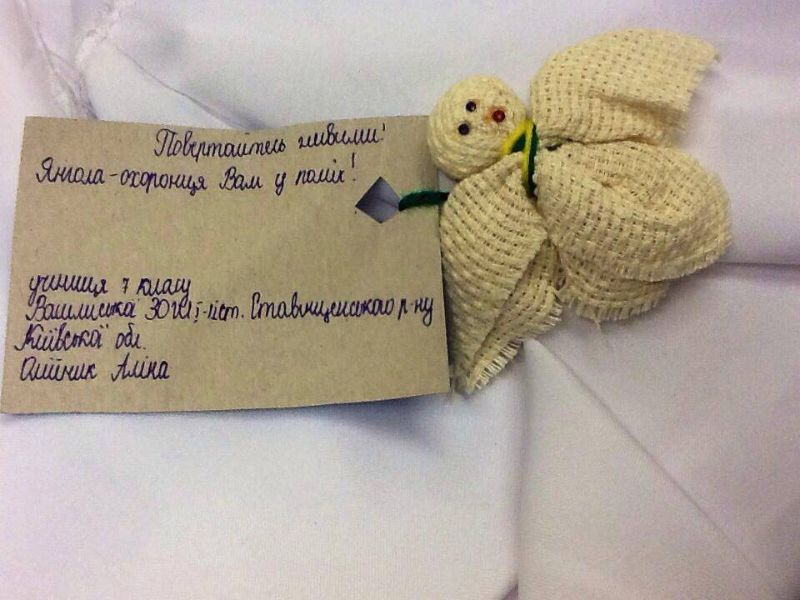 Повертайтесь живими!
Янгола-охоронця Вам у поміч!
учениця 7 класу
ЗОШ І-ІІст. Ставищенського р-ну
Київська обл.
Олійник Аліна